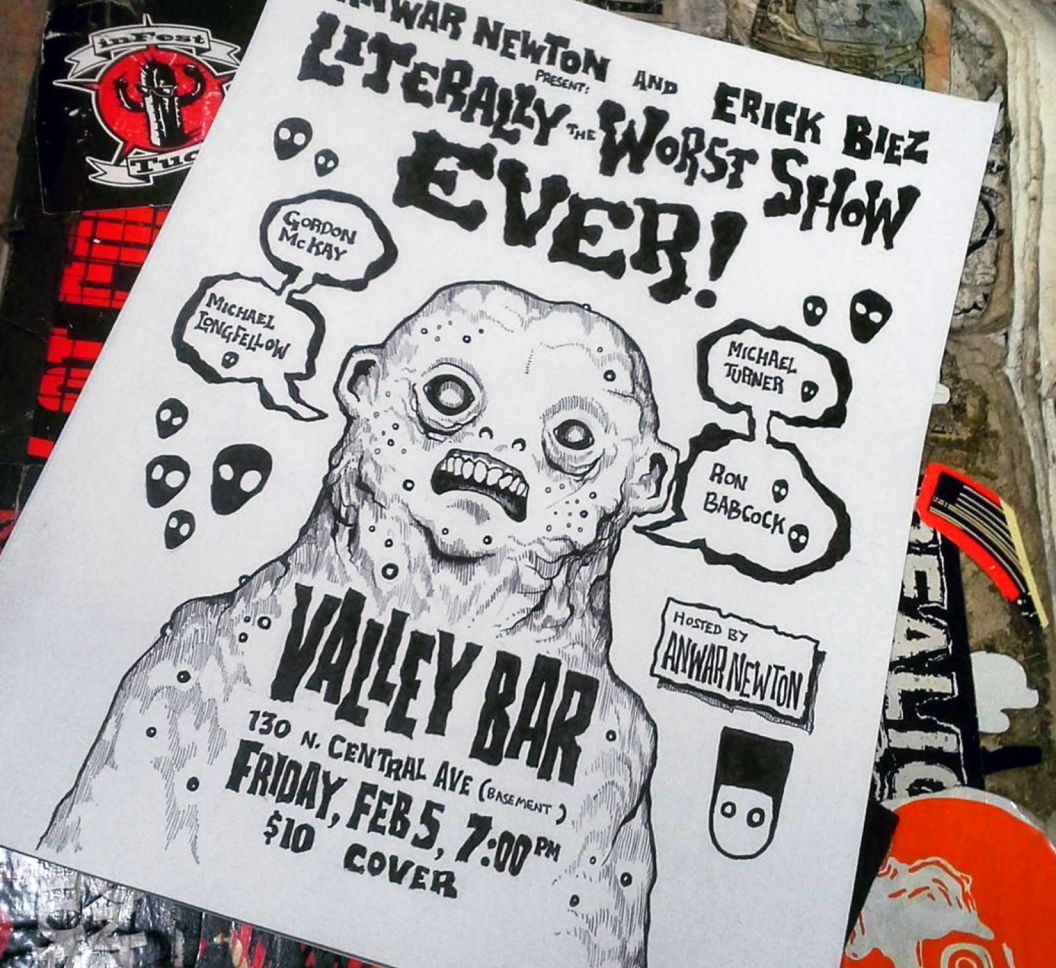 ANWAR NEWTON AND ERICK BIEZ
PRESENT:
LITERALLY THE WORST SHOW
EVER!
GORDON
McKAY
MICHAEL
LONGFELLOW
MICHAEL
TURNER
RON
BABCOCK
HOSTED BY
ANWAR NEWTON
VALLEY BAR
130 N. CENTRAL AVE (BASEMENT)
FRIDAY, FEB 5, 7:00 PM
$10 COVER
inFest